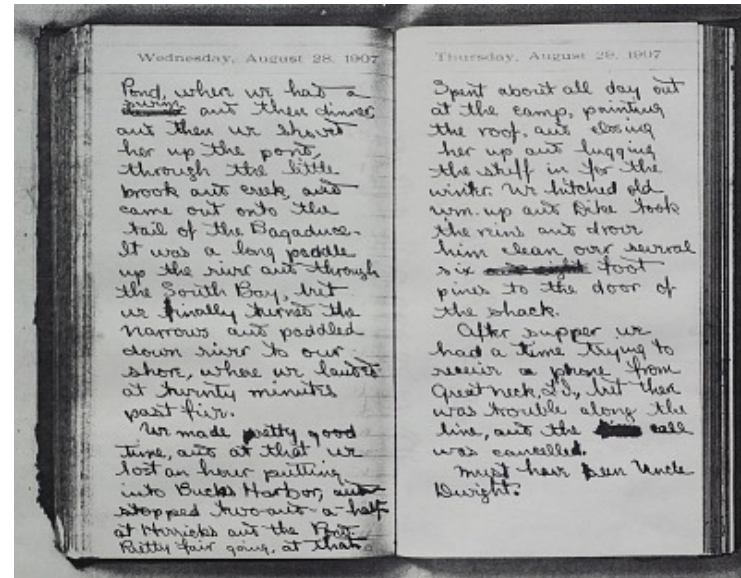 Wednesday, August 28, 1907
Pond, where we had a
swim and then dinner,
and then we shoved
her up the pond,
through the little
brook and creek, and
came out onto the
tail of the Bagaduce.
It was a long paddle
up the river and through
the South Bay, but
we finally turned the
narrows and paddled
down river to our
shore, where we landed
at twenty minutes
past five.
We made pretty good
time, and at that, we
lost an hour putting
into Bucks Harbor, and
stopped two-and-a-half
at Herricks and the Pond.
Pretty fair going, at that.
Thursday, August 29, 1907
Spent about all day out
at the camp, painting
the roof, and closing
her up and lugging
the stuff in for the
winter. We hitched old
wm. up and Dike took
the reins and drove
him clean over several
six and eight foot
pines to the door of
the shack.
After supper we
had a time trying to
receive a phone from
Great neck, L.I., but there
was trouble along the
line, and the call
was cancelled.
Must have been Uncle
Dwight.